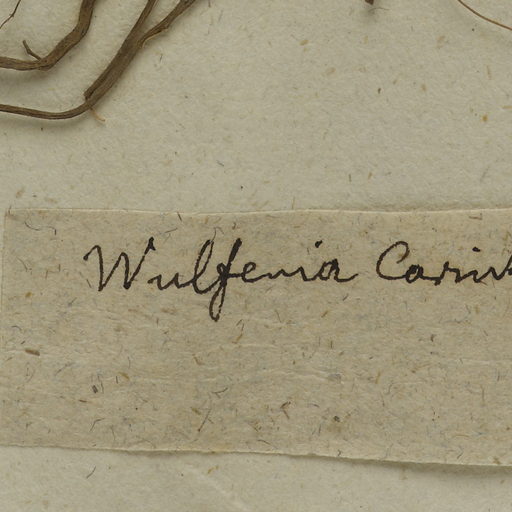 Wulfenia Carin